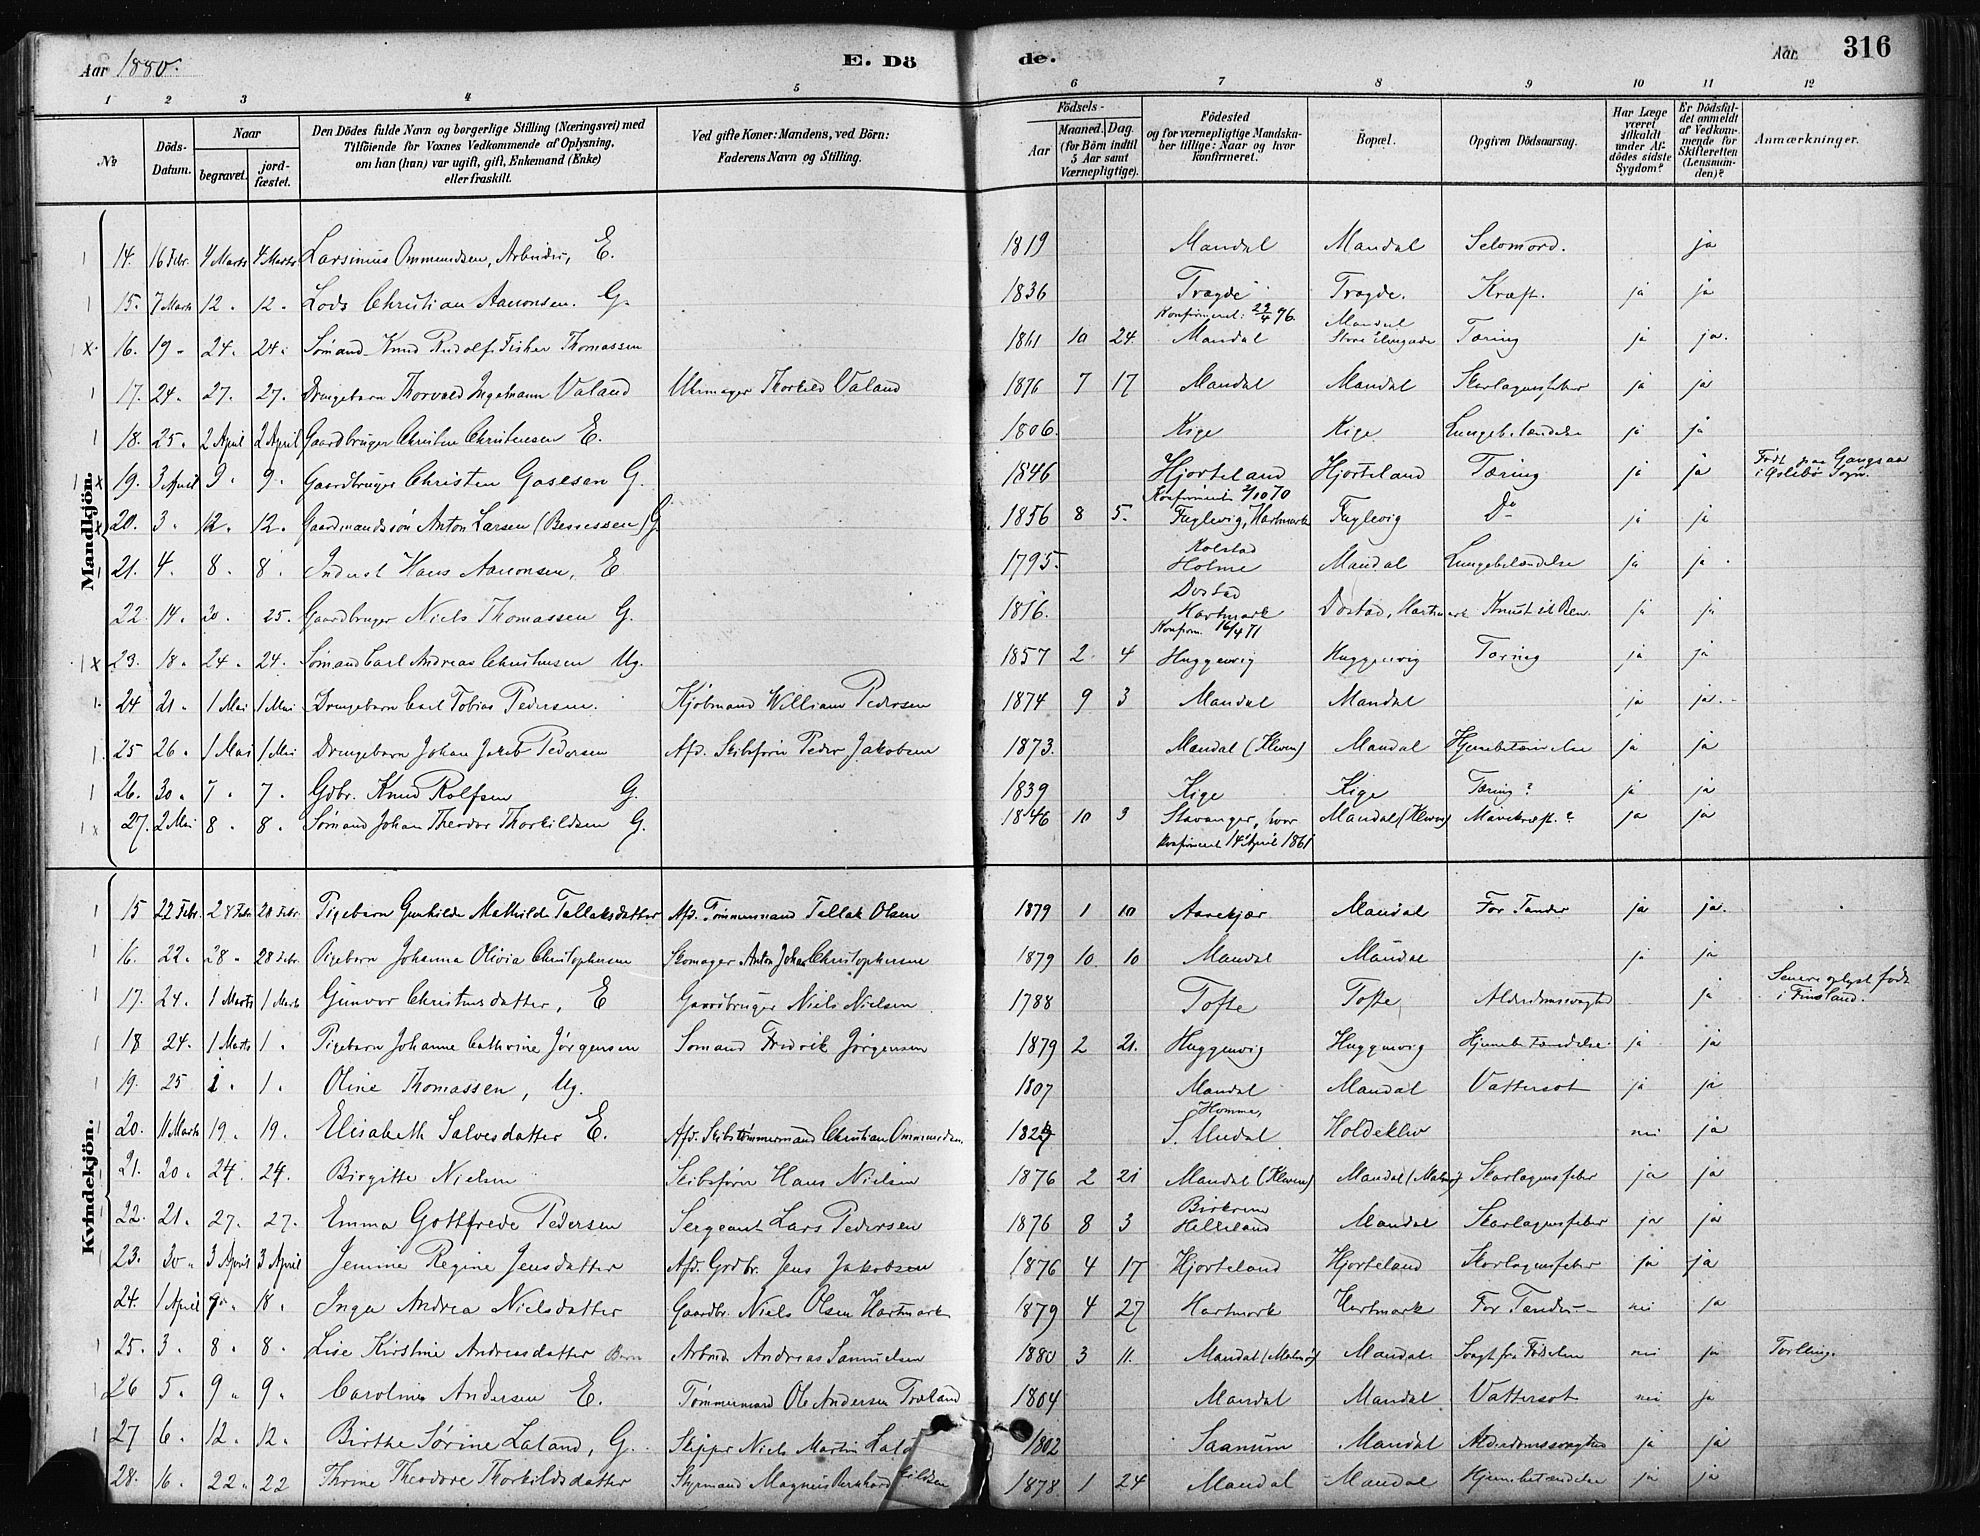 Aar 1880. E. Döde. Aar 316
1 2 3 4 5 6 7 8 9 10 11 12
No Döds-Datum. Naar begravet. jordfæstet. Den Dödes fulde Navn og borgerlige Stilling (Næringsvei) med Tilföiende for Voxnes Vedkommende af Oplysning, om han (hun) var ugift, gift, Enkemand (Enke) eller fraskilt. Ved gifte Koner: Mandens, ved Börn: Faderens Navn og Stilling. Födsels- Aar Maaned. Dag. (for Börn indtil 5 Aar samt Værnepligtige). Födested og for værnepligtige Mandskaber tillige: Naar og hvor konfirmeret. Bopæl. Opgiven Dödsaarsag. Har Læge været tilkaldt under Afdödes sidste Sygdom? Er Dödsfaldet anmeldt af Vedkommende for Skifteretten (Lensmanden)? Anmærkninger.
Mandkjön.
14. 16 Febr. 4 Marts 4 Marts Larsinius Ommundsen, Arbeider, E. 1819 Mandal Mandal Selvmord. ja
15. 7 Marts 12 " 12 " Lods Christian Aanonsen. G. 1836 Tregde Tregde. Kræft. ja ja
16. 19 " 24 " 24 " Sømand Knud Rudolf Fisker Thomassen 1861 10 24 Konfirmeret: Mandal Mandal Store Elvegade Tæring ja ja.
17. 24 " 27. 27. Drengebarn Thorvald Ingemann Valand Uhrmager Thorkild Valand 1876 7 17 Mandal Mandal Skarlagensfeber ja ja
18. 25 " 2 April 2 April Gaardbruger Christen Christensen E. 1806. Kige Kige Lungebetændelse ja ja
19. 3 April 9 " 9 " Gaardbruger Christen Gasesen G. 1846 Hjorteland Hjorteland Tæring ja ja Født paa Gangsaa i Øslebø Sogn.
20. 3 " 12 " 12 " Gaardmandssøn Anton Larsen (Berressen) G. 1856 8 5. Konfirmeret 2/10 70 Fuglevig, Hartmark Fuglevig Do ja ja
21. 4. 8. 8. Inderst Hans Aanonsen, E 1795. Kolstad Holme Mandal Lungebetændelse ja ja
22. 14. 20. 25. Gaardbruger Niels Thomassen G. 1816. Dostad Hartmark Dostad, Hartmark Knust et Ben ja ja
23. 18 " 24 " 24. Sømand Carl Andreas Christensen Ug. 1857 2 4 Konfirm. 16/4 71 Huggenvig Huggenvig Tæring ja ja
24 21 " 1 Mai 1 Mai Drengebarn Carl Tobias Pedersen. Kjøbmand William Pedersen 1874 9 3 Mandal Mandal ja ja
25 26 " 1 Mai 1 Mai Drengebarn Johan Jakob Pedersen Afd. Skibsfører Peder Jakobsen 1873. Mandal (Kleven) Mandal Hjernebetændelse ja ja
26. 30 " 7 " 7. Gdbr. Knud Rolfsen G. 1839 Kige Kige Tæring? ja ja
27. 2 Mai 8 " 8. Sømand Johan Theodor Thorkildsen G. 1846 10 3 Stavanger, hvor konfirmeret 14 April 1861 Mandal (Kleven) Mavekræft.? ja ja
Kvindekjön.
15 22 Febr. 28 Febr 28 Febr. Pigebarn Gunhilde Mathilde Tallaksdatter Afd. Tømmermand Tallak Olsen 1879 1 10 Aarekjær Mandal For Tænder ja ja.
16. 22 " 28 " 28 Febr. Pigebarn Johanna Olivia Christophersen Skomager Anton Johan Christophersen 1879 10 10 Mandal Mandal ja ja
17. 24 " 1 Marts 1 Marts Gunvor Christensdatter, E Gaardbruger Niels Nielsen 1788 Tofte Tofte Alderdomssvaghed ja Senere oplyst født i Finsland.
18 24. 1 Marts 1 " Pigebarn Johanne Cathrine Jørgensen Sømand Fredrik Jørgensen 1879 2 21. Huggenvig Huggenvig Hjernebetændelse ja ja
19. 25 1 " 1. Oline Thomassen, Ug. 1807 Mandal Mandal Vattersot ja ja
20. 11 Marts 19. 19. Elisabeth Salvesdatter E. Afd. Skibstømmermand Christian Ommundsen Homme, S. Undal Holdeklev nei ja
21. 20 " 24. 24. Birgitte Nielsen Skibsfører Hans Nielsen 1876 2 21 Mandal (Kleven) Mandal (Malmø) Skarlagensfeber ja ja
22. 21. 27. 27. Emma Gottfrede Pedersen Sergeant Lars Pedersen 1876 8 3 Birkrem Helleland Mandal Skarlagensfeber ja ja
23. 30 " 3 April 3 April Jemine Regine Jensdatter Afd. Grdbr. Jens Jakobsen 1876 4 17 Hjorteland Hjorteland Skarlagensfeber ja ja
24. 1 April 18. Inga Andrea Nielsdatter Gaardbr. Niels Olsen Hartmark 1879 4 27 Hartmark Hartmark For Tænder nei ja
25. 3 " 8 " 8. Lise Kirstine Andreasdatter Barn Arbeid. Andreas Samuelsen 1880 3 11. Mandal (Malmø) Mandal Svagt fra Fødselen nei ja Tvilling.
26 5 " 9 " 9 " Caroline Andersen E. Tømmermand Ole Andersen Træland 1804 Mandal Mandal Vattersot nei ja
27 6 " 12 " 12 " Birthe Sørine Laland, G. Skipper Niels Martin Lal 1802 Saanum Mandal Alderdomssvaghed ja ja
28. 16 " 22 " 22 Thrine Theodore Thorkildsdatter Styrmand Magnus Bernhard kildsen 1878. 1 24 Mandal Mandal Hjernebetændelse ja ja